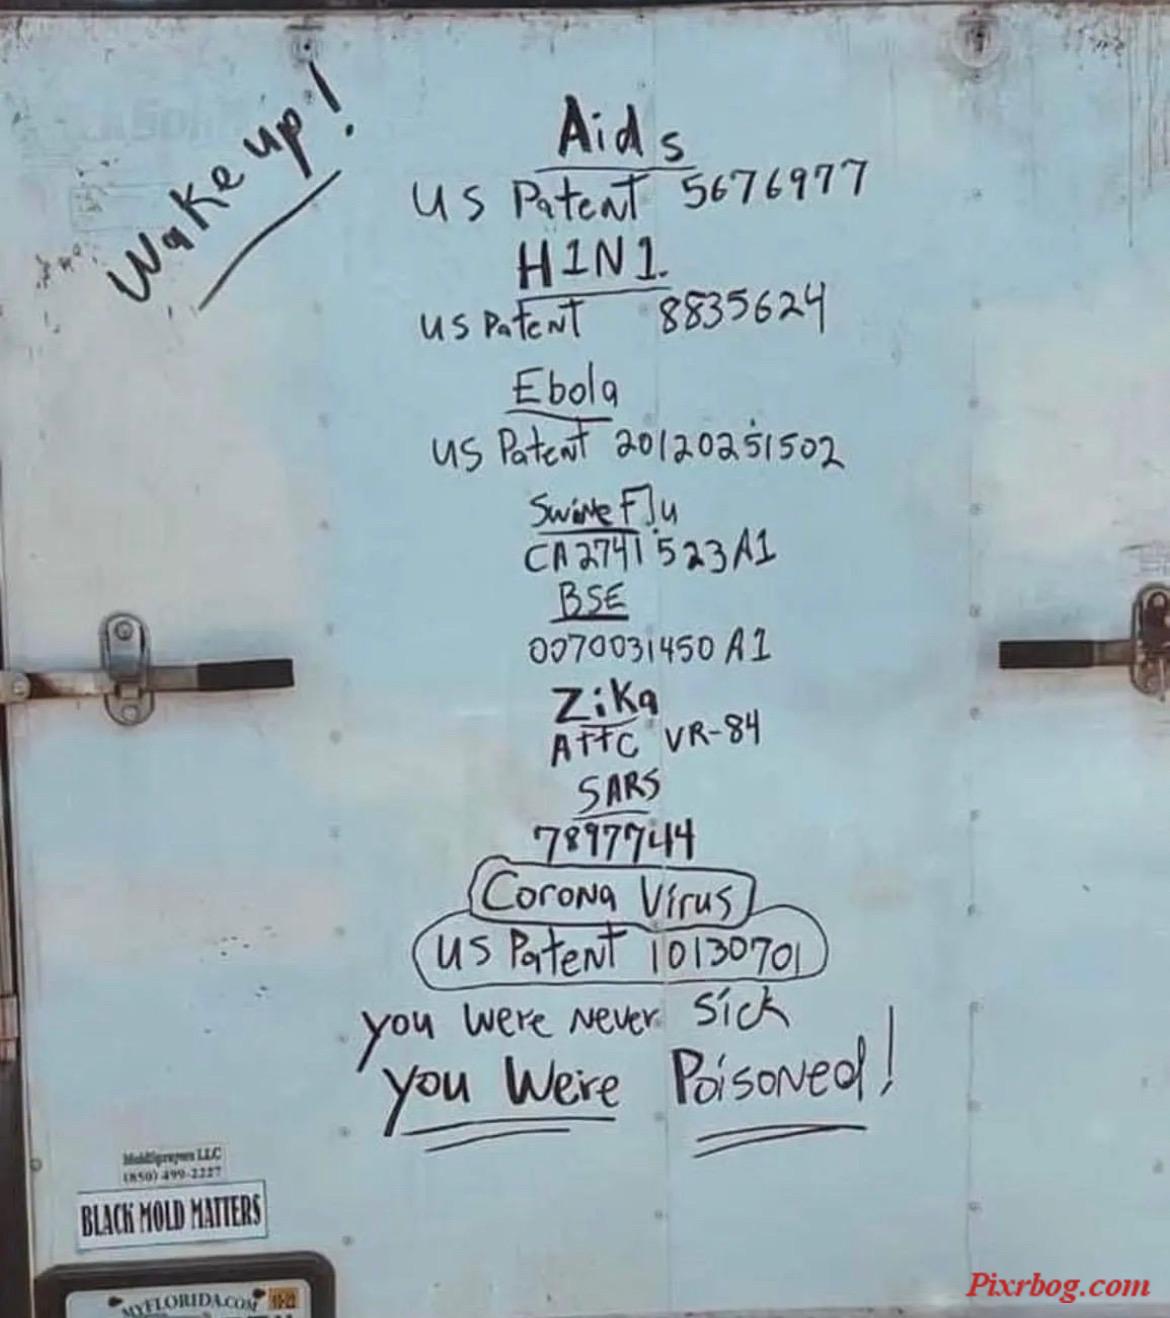 Wake up!
Aids
US Patent 5676977
H1N1.
US Patent 8835624
Ebola
US Patent 20120251502
Swine Flu
CA2741523A1
BSE
0070031450 A1
Zika
ATTC VR-84
SARS
7897744
Corona Virus
US Patent 10130701
you were never sick
you were Poisoned!
MoldSprayers LLC
(850) 499-2227
BLACK MOLD MATTERS
MYFLORIDA.COM
10-22
Pixrbog.com